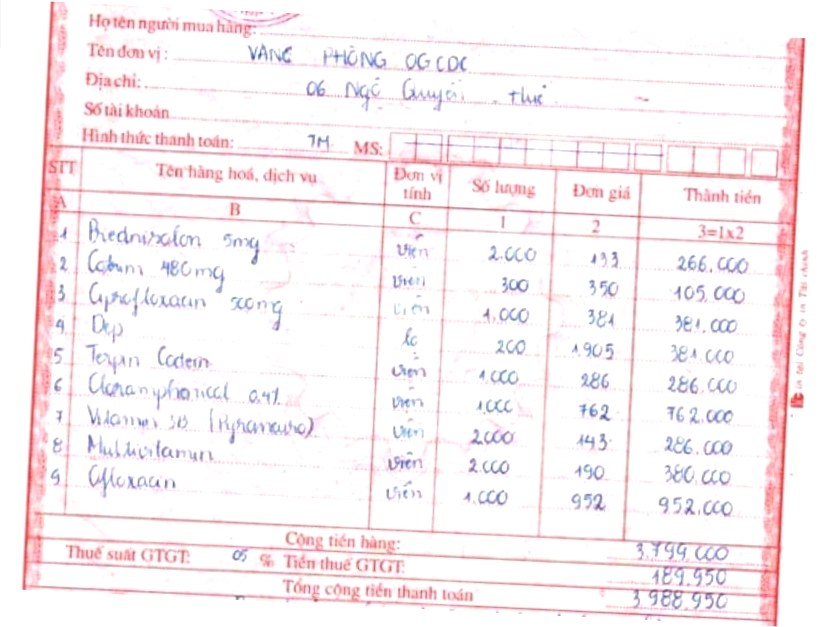 Họ tên người mua hàng:
Tên đơn vị: VĂNG PHÒNG OGCDC
Địa chỉ: 06 Ngô Quyền, Huế
Số tài khoản
Hình thức thanh toán: TM. MS:
STT Tên hàng hoá, dịch vụ Đơn vị tính Số lượng Đơn giá Thành tiền
A B C 1 2 3=1x2
1 Prednisolon 5mg viên 2.000 133 266.000
2 480mg viên 300 350 105.000
3 Ciprofloxacin 500mg viên 1.000 381 381.000
4 Dep lọ 200 1905 381.000
5 Terpin Codein viên 1.000 286 286.000
6 0.4% viên 1.000 762 762.000
7 Vitamin 3B viên 2.000 143 286.000
8 Multivitamin viên 2.000 190 380.000
9 Ofloxacin viên 1.000 952 952.000
Cộng tiền hàng: 3.799.000
Thuế suất GTGT: 05 % Tiền thuế GTGT: 189.950
Tổng cộng tiền thanh toán 3.988.950
in tại Công ty in Tài chính